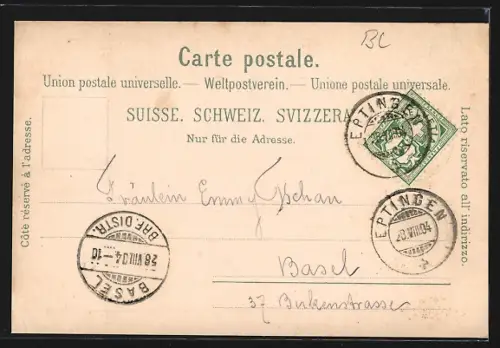 BL
Carte postale.
Union postale universelle. — Weltpostverein. — Unione postale universale.
SUISSE. SCHWEIZ. SVIZZERA
Nur für die Adresse.
Côté réservé à l'adresse.
Lato riservato all' indirizzo.
EPTINGEN
EPTINGEN
20.VIII.04
Fräulein Emmy Tschan
Basel
37 Birkenstrasse
BASEL
28.VIII.04-10
BRF.DISTR.